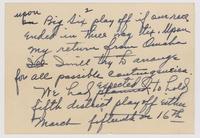 upon 2
Big Six play off if our race
ended in three way tie. Upon
my return from Omaha
I will try to arrange
for all possible contingencies.
We had planned to hold
fifth district play off either
March fifteenth or 16th